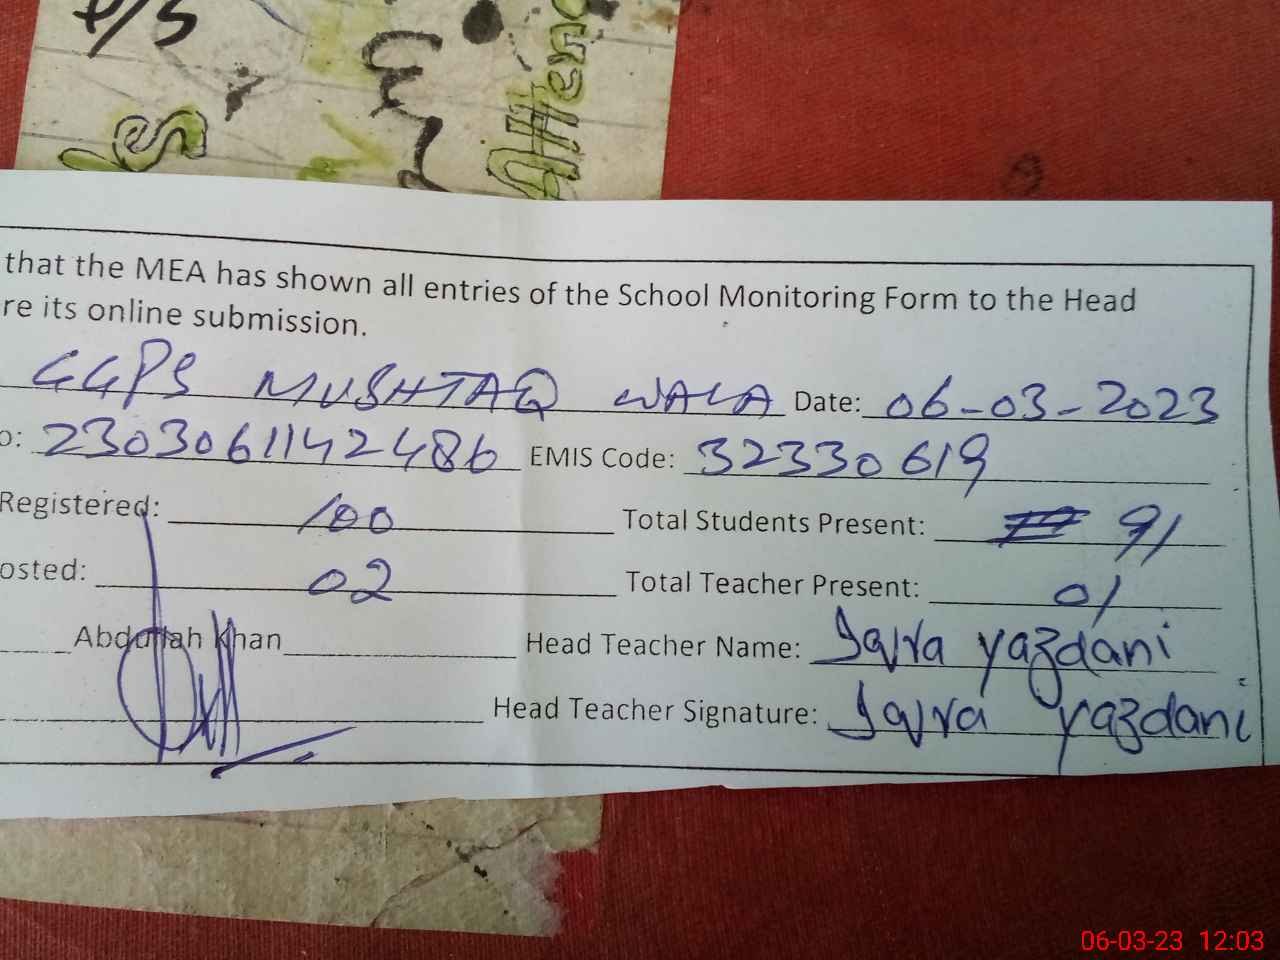 P/S
that the MEA has shown all entries of the School Monitoring Form to the Head
re its online submission.
GGPS MUSHTAQ WALA Date: 06-03-2023
o: 23030611142486 EMIS Code: 32330619
Registered: 100 Total Students Present: 91
osted: 02 Total Teacher Present: 01
Abdullah Khan Head Teacher Name: Iqra yazdani
Head Teacher Signature: Iqra yazdani
06-03-23 12:03